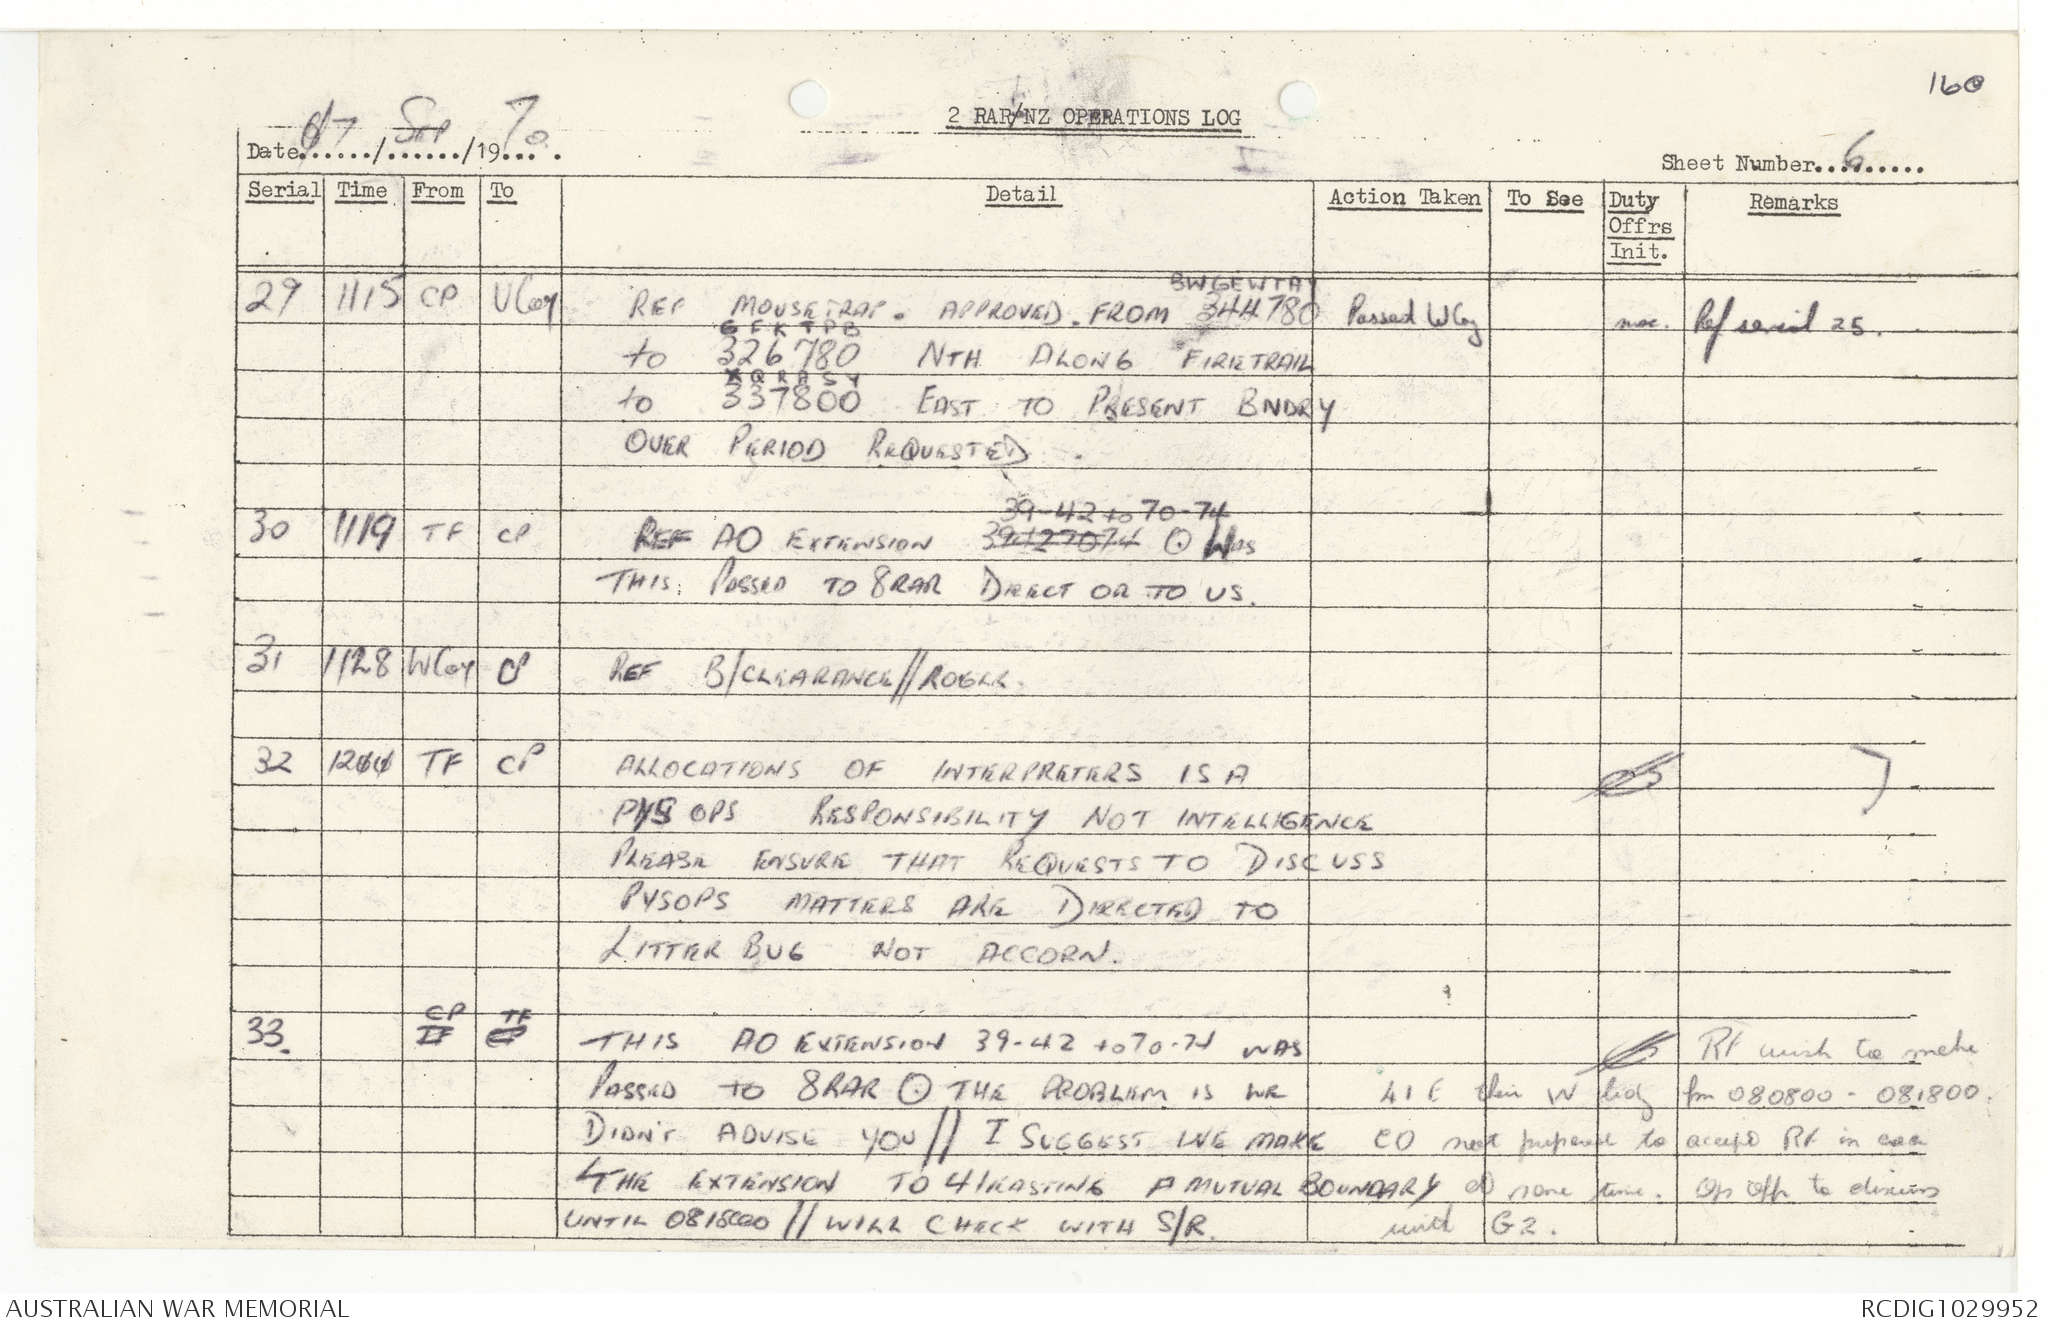 160
2 RAR/NZ OPERATIONS LOG
Date 07/Sep/1970.
Sheet Number 6
Serial Time From To Detail Action Taken To See Duty Offrs Init. Remarks
BWGEWTAY
29 1115 CP VCoy REF MOUSETRAP. APPROVED. FROM 344780 Passed WCoy Ref serial 25.
GFKTPB
to 326780 NTH ALONG FIRETRAIL
XQRASY
to 337800 EAST TO PRESENT BNDRY
OVER PERIOD REQUESTED.
39-42 to 70-74
30 1119 TF CP REF AO EXTENSION 39427074 ⊙ WAS
THIS PASSED TO 8RAR DIRECT OR TO US.
31 1128 WCoy CP REF B/CLEARANCE//ROGER.
32 1200 TF CP ALLOCATIONS OF INTERPRETERS IS A
PYSOPS RESPONSIBILITY NOT INTELLIGENCE
PLEASE ENSURE THAT REQUESTS TO DISCUSS
PYSOPS MATTERS ARE DIRECTED TO
LITTER BUG NOT ACCORN.
CP TF
33. TF CP THIS AO EXTENSION 39-42 to 70-74 WAS RF wish to make
PASSED TO 8RAR ⊙ THE PROBLEM IS WE 41 E their W bdy fm 080800 - 081800.
DIDN'T ADVISE YOU // I SUGGEST WE MAKE CO not prepared to accept RF in
THE EXTENSION TO 41 EASTING A MUTUAL BOUNDARY AO same time. Ops Offr to discuss
UNTIL 081800 // WILL CHECK WITH S/R. with G2.